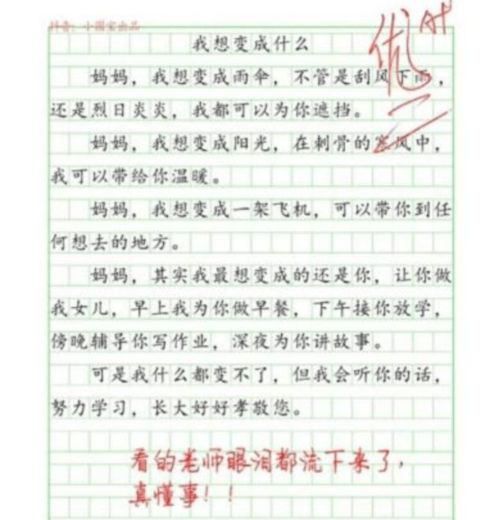 抖音：小圈宝出品
优 A+
我想变成什么
妈妈，我想变成雨伞，不管是刮风下雨，
还是烈日炎炎，我都可以为你遮挡。
妈妈，我想变成阳光，在刺骨的寒风中，
我可以带给你温暖。
妈妈，我想变成一架飞机，可以带你到任
何想去的地方。
妈妈，其实我最想变成的还是你，让你做
我女儿，早上我为你做早餐，下午接你放学，
傍晚辅导你写作业，深夜为你讲故事。
可是我什么都变不了，但我会听你的话，
努力学习，长大好好孝敬您。
看的老师眼泪都流下来了，
真懂事！！